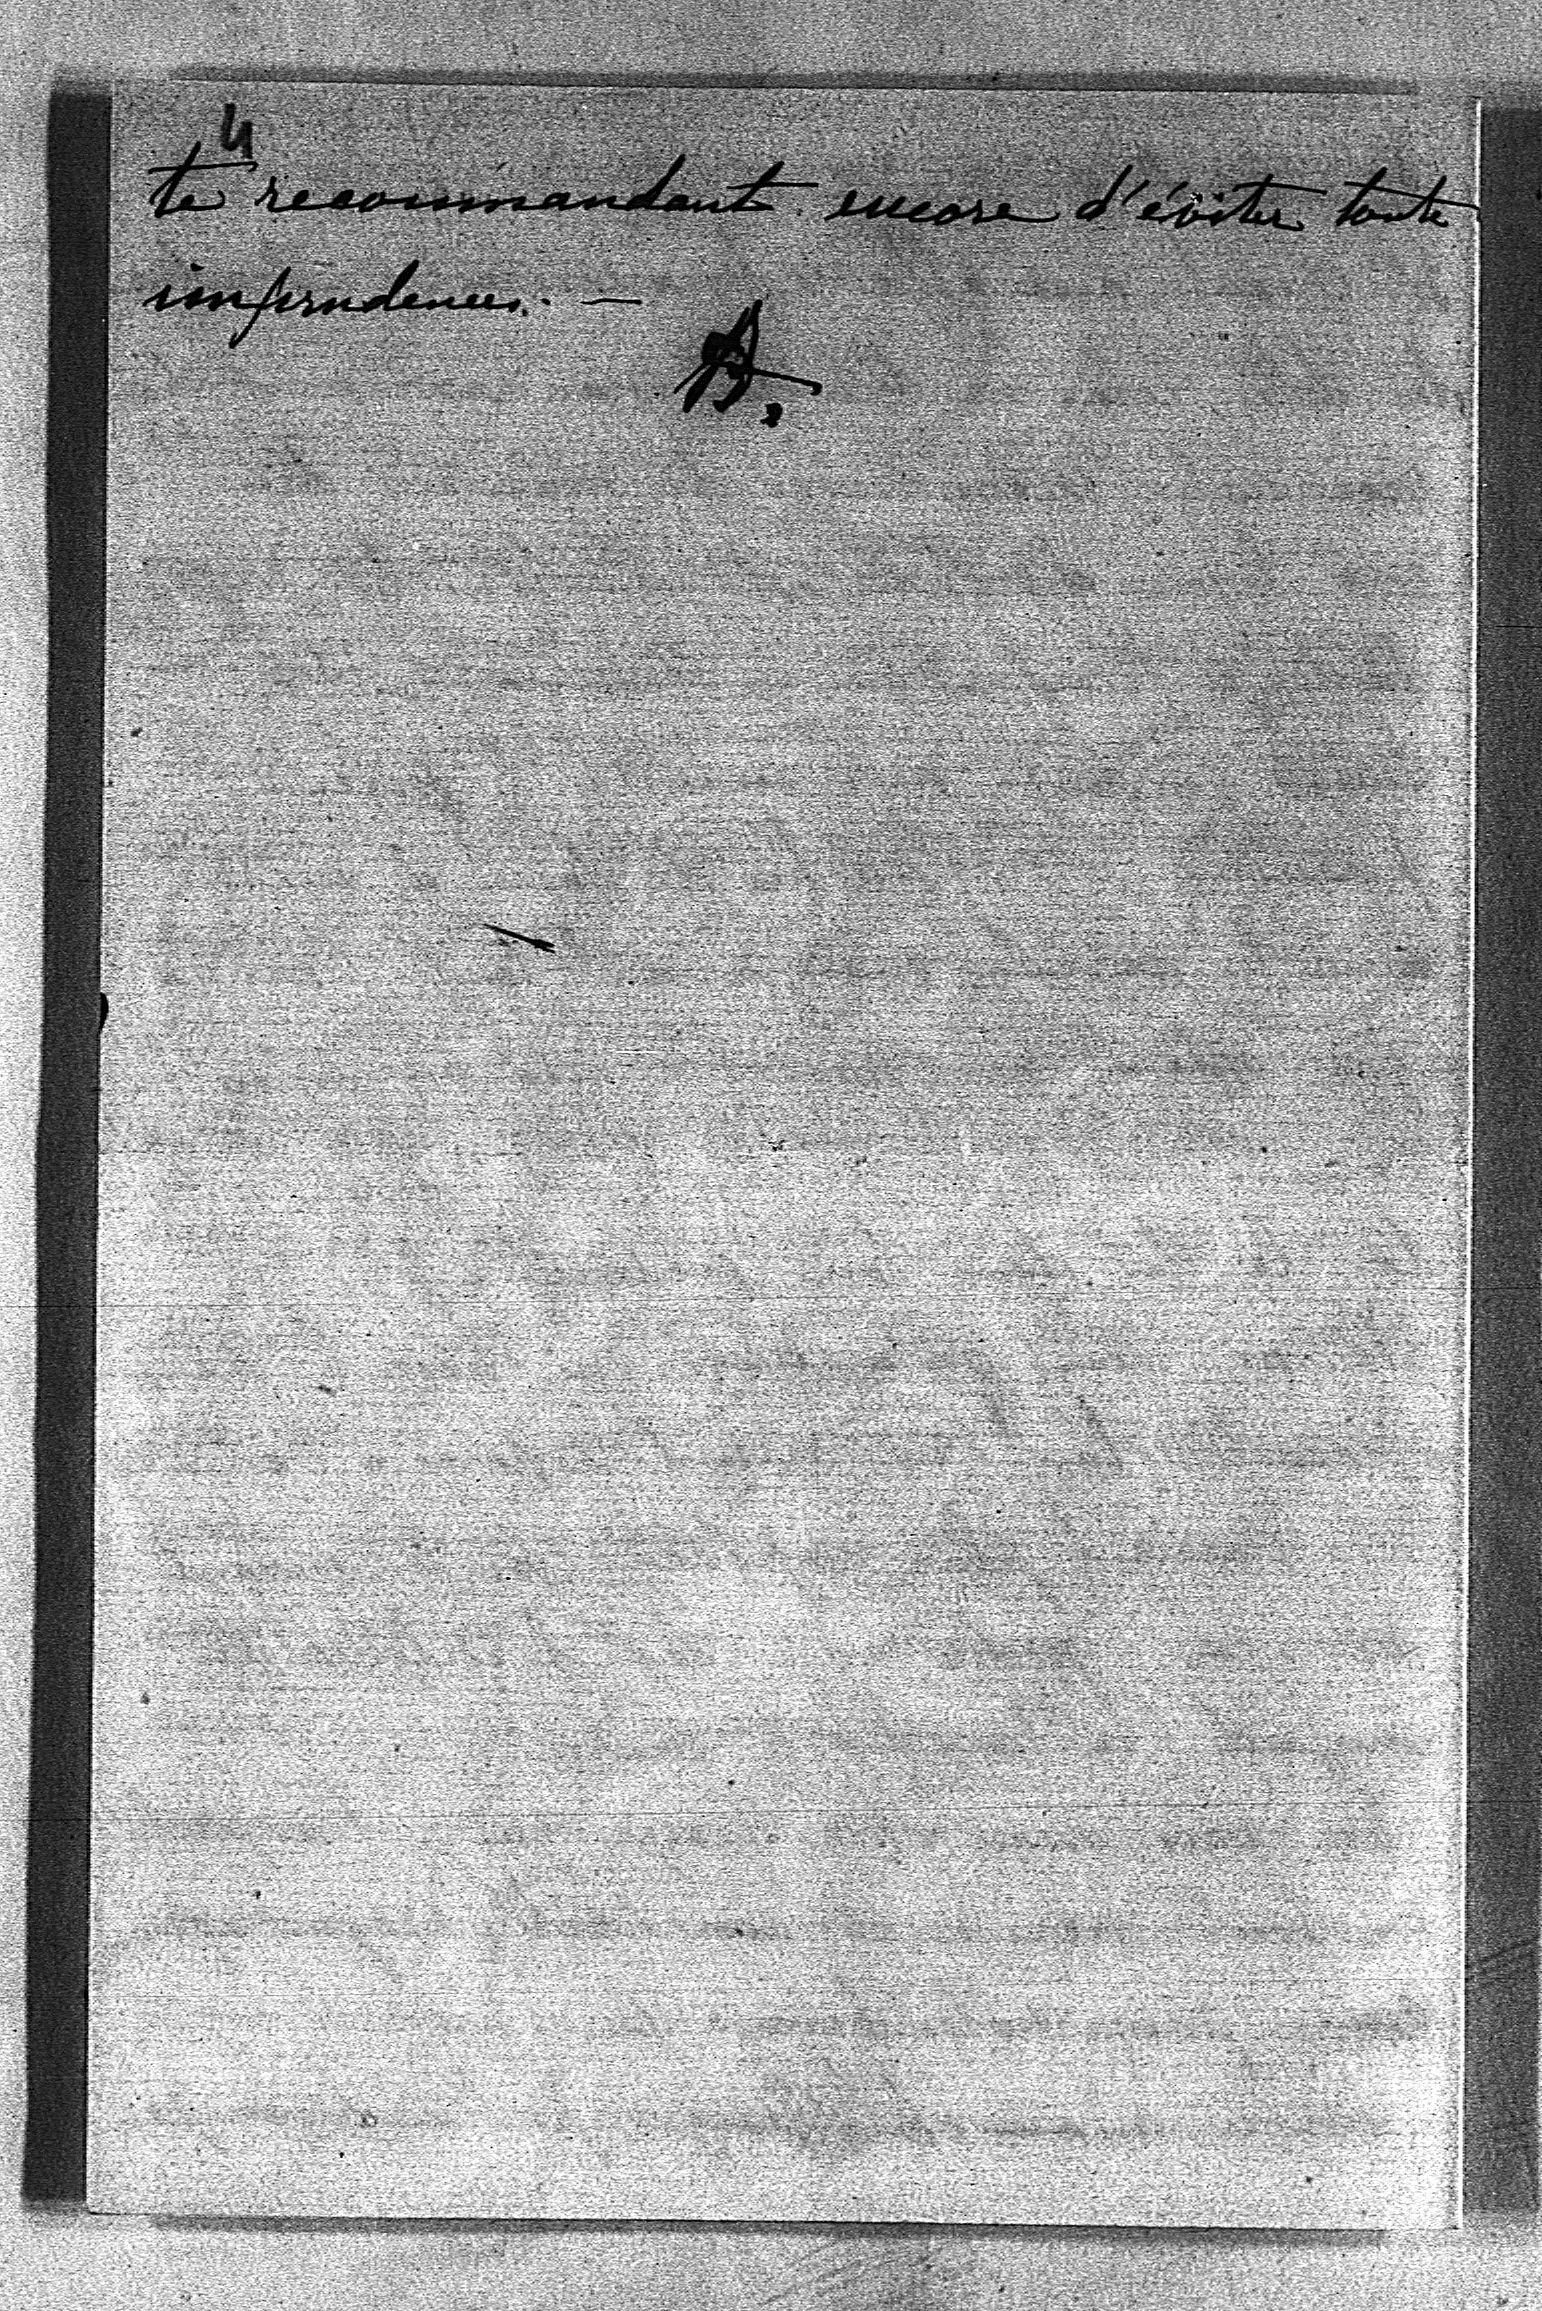 4
te recommandant encore d'éviter toute
imprudence. —
A.